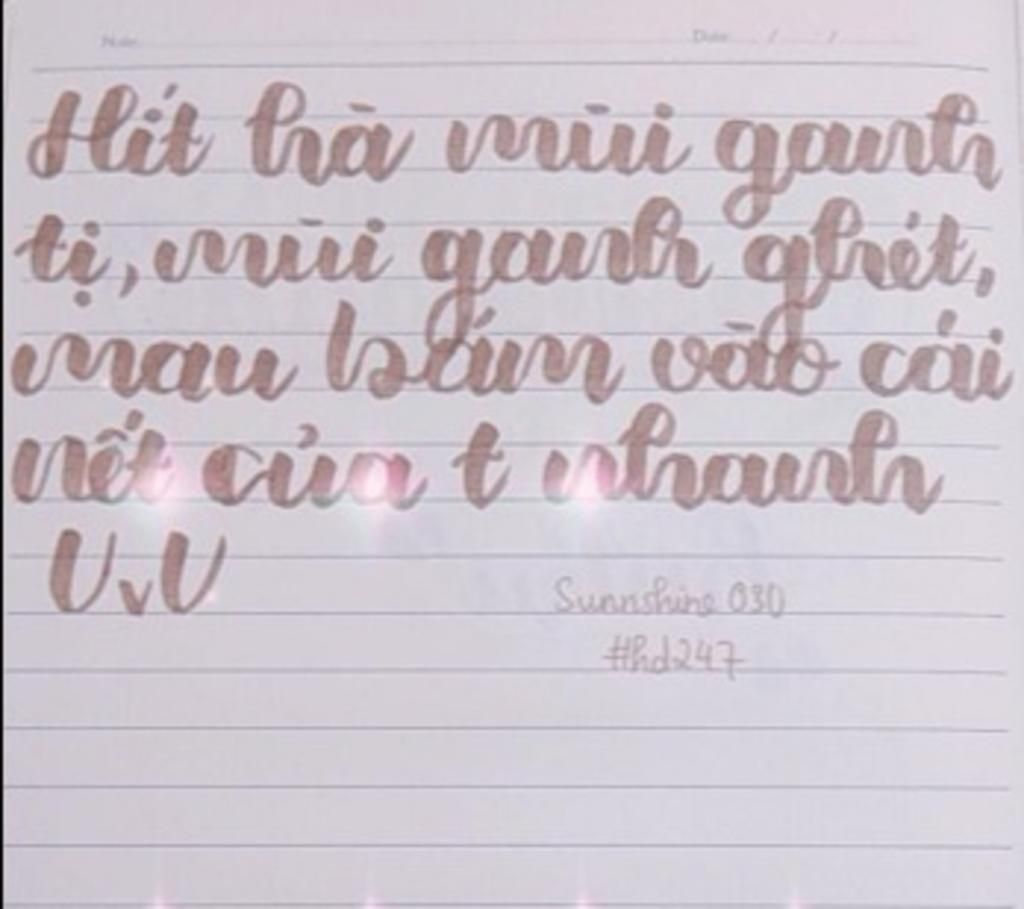 Note
Date / /
Hít hà mùi ganh
tị, mùi ganh ghét,
mau bám vào cái
nết của t nhanh
UvU
Sunnshine 030
#hd247